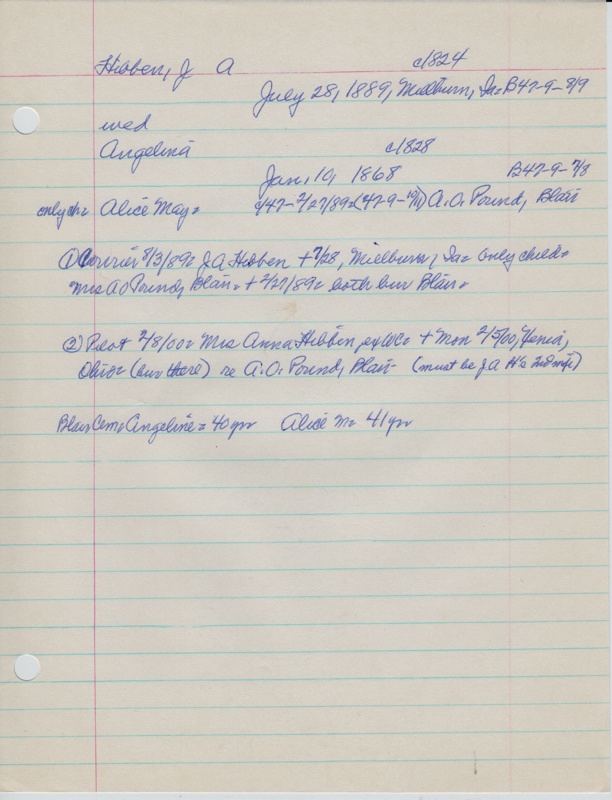 Hibben, J A c1824
July 28, 1889, Millburn, Ia= B47-9-8/9
wed
Angelina c1828
Jan, 10, 1868 B47-9-7/8
only ch= Alice May= c/47-2/27/89=(47-9-10/11) A.O. Pound, Blair
① Courier 8/3/89= J A Hibben + 7/28, Millburn, Ia= only child=
Mrs A O Pound, Blair= + 2/27/89= both bur Blair=
② Pilot 2/8/00= Mrs Anna Hibben, ex WC= + Mon 2/5/00, Xenia,
Ohio= (bur there) re A.O. Pound, Blair- (must be J A H's 2nd wife)
Blair Cem= Angeline= 40 yr Alice M= 41 yr